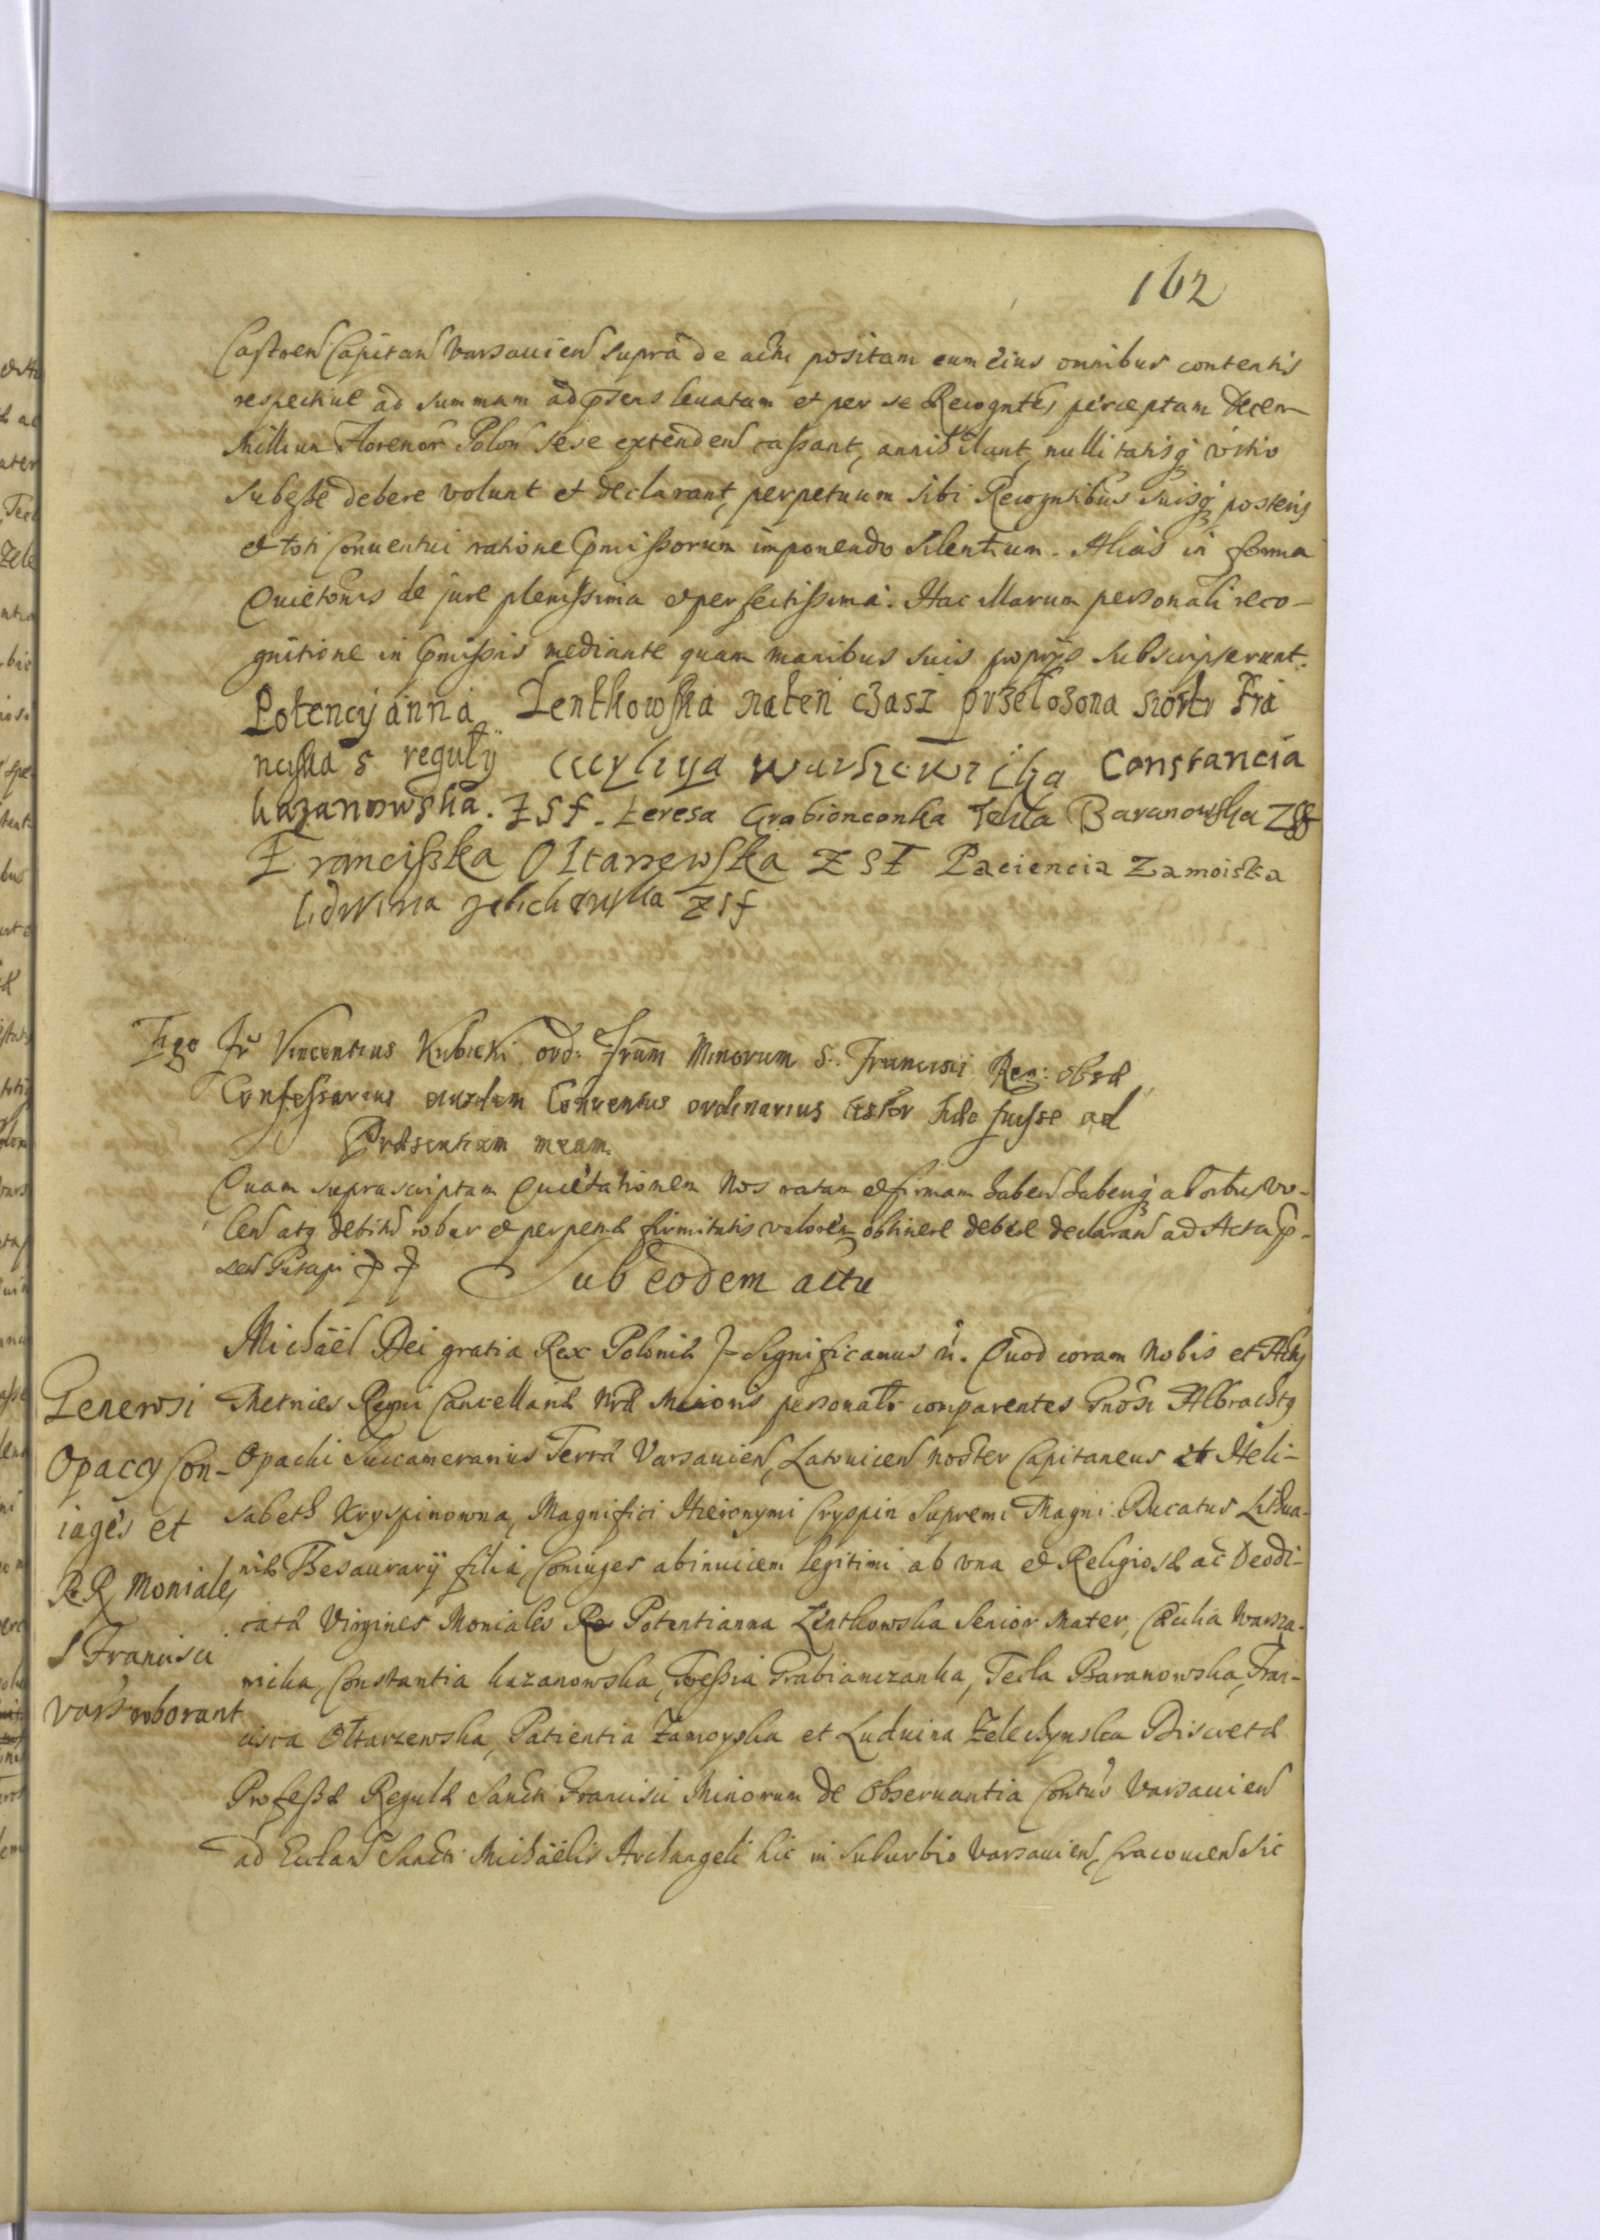 162
Castren Capitan Varsavien supra de actu positam cum eius omnibus contentis
respective ad summam ad praesens levatam et per se Recogntes perceptam decem
Millium Florenor Polon sese extenden cassant, annihilant, nullitatisq vitio
subesse debere volunt et declarant, perpetuum sibi Recogntibus suisq posteris
et toti Conventui ratione praemissorum imponendo silentium. Alias in forma
Quietonis de jure plenissima et perfectissima. Hac illarum personali reco-
gnitione in praemissis mediante quam manibus suis proprys subscripserunt.
Potencyanna Zentkowska naten czasz przełozona siostr Fra
nciska S reguły Cecyliya Warszewicka Constancia
kazanowska. ZSF. teresa Grabionconka Tekla Baranowska ZSF
Franciszka Ołtarzewska ZSF Paciencia Zamoiska
lidwina zelichowska ZSF
Ego Fr Vincentius Kubicki ord: Frum Minorum S. Francisci Reg: obser
Confessarius eiusdem Conventus ordinarius testor hoc fuisse ad
Praesentiam meam.
Quam suprascriptam Quietationem Nos ratam et firmam haben habeniq ab orbus vo-
len atq debitum robur et perpetuae firmitatis valorem obtinere debere declaran ad Acta p-
sen suscepi
Sub eodem actu
Michaël Dei gratia Rex Poloniae Significamus n. Quod coram Nobis et Actis
Generosi
Opaccy Con-
iages et
R R Moniales
S Francisci
Vars roborant
Metrices Regni Cancellariae Nrae Minoris personaliter comparentes Gnosi Albrachtg
Opacki Succamerarius Terrae Varsavien, Latovicen noster Capitaneus et Heli-
sabeth Kryspinowna, Magnifici Hieronymi Cryspin Supremi Magni Ducatus Lithua-
niae Thesaurary filia, Coniuges ab invicem legitimi ab una et Religiosae ac Deodi-
catae Virgines Moniales Potentianna Zentkowska Senior Mater, Cæcilia Warsza-
wicka, Constantia kazanowska, Teressia Grabianczanka, Tecla Baranowska, Fran-
cisca Ołtarzewska, Patientia Zamoyska et Luduina Zelechynska Discretae
Professae Regulae Sancti Francisci Minorum de Observantia Contus Varsavien
ad Eccla Sancti Michaëlis Archangeli hic in suburbio Varsavien, Cracovien sic